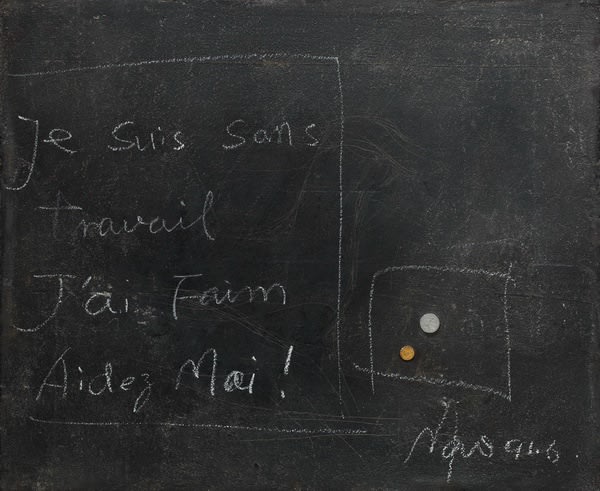 Je suis sans
travail
J'ai Faim
Aidez Moi!